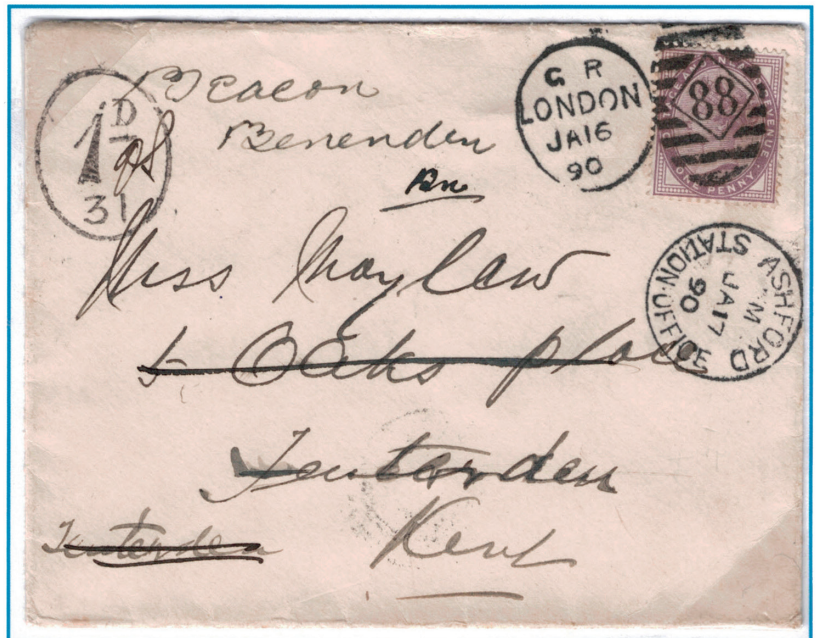 Beacon
Benenden
1D
31
G R
LONDON
JA16
90
88
ONE PENNY
ASHFORD STATION OFFICE
M
JA17
90
Miss Maylaw
5 Oaks Place
Tenterden
Tenterden
Kent